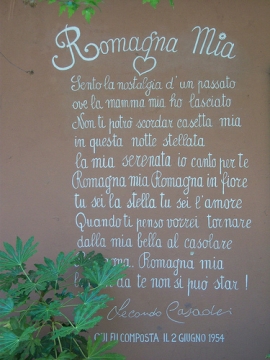 Romagna Mia
Sento la nostalgia d'un passato
ove la mamma mia ho lasciato
Non ti potrò scordar casetta mia
in questa notte stellata
la mia serenata io canto per te
Romagna mia Romagna in fiore
tu sei la stella tu sei l'amore
Quando ti penso vorrei tornare
dalla mia bella al casolare
Romagna mia
da te non si può star!
Secondo Casadei
QUI FU COMPOSTA IL 2 GIUGNO 1954